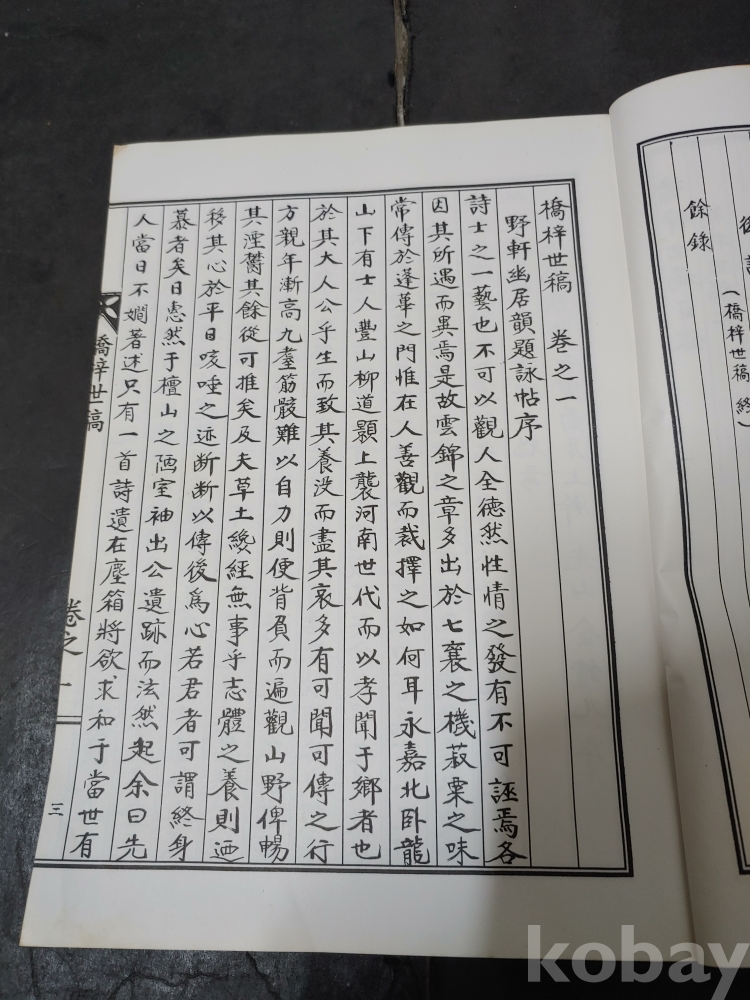 餘錄
(橋梓世稿 終)
橋梓世稿 卷之一
野軒幽居韻題詠帖序
詩士之一藝也不可以觀人全德然性情之發有不可誣焉各
因其所遇而異焉是故雲錦之章多出於七襄之機菽粟之味
常傳於蓬蓽之門惟在人善觀而裁擇之如何耳永嘉北卧龍
山下有士人豐山柳道顥上襲河南世代而以孝聞于鄉者也
於其大人公乎生而致其養沒而盡其哀多有可聞可傳之行
方親年漸高九耋筋骸難以自力則便背負而遍觀山野俾暢
其湮鬱其餘從可推矣及夫草土縗絰無事乎志體之養則迺
移其心於平日咳唾之迹断断以傳後爲心若君者可謂終身
慕者矣日悤然于檀山之陋室袖出公遺跡而泫然起余曰先
人當日不嫺著述只有一首詩遺在塵箱將欲求和于當世有
橋梓世稿
卷之一
三
kobay